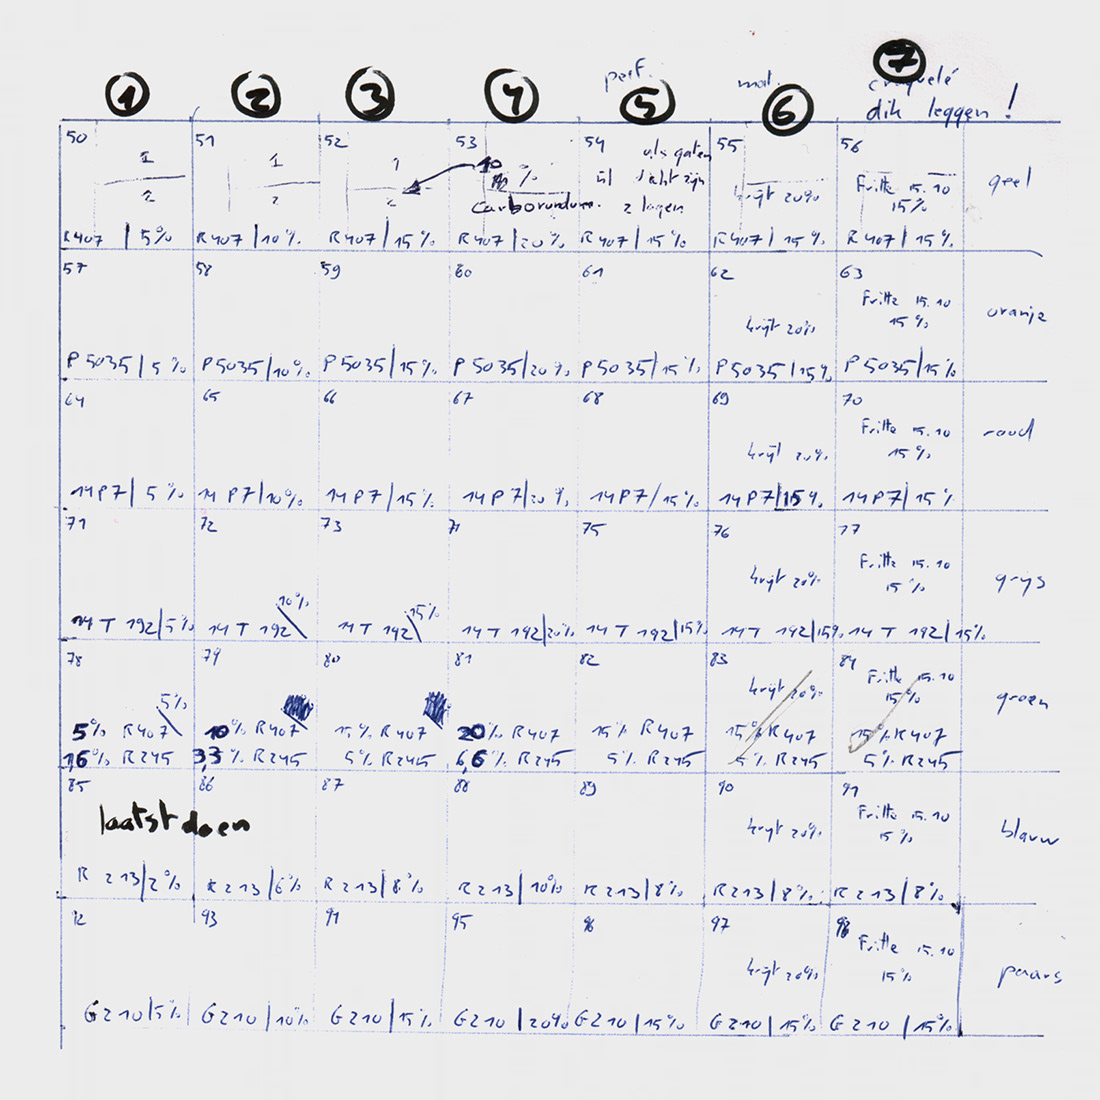 1 2 3 4 5 6 7
perf. mat.
dik leggen !
50 51 52 53 54 55 56
1 1 1 10 % als gaten
2 2 2 Carborundum. 2 lagen krijt 20% Fritte 15.10 15% geel
R407 | 5% R407 | 10% R407 | 15% R407 | 20% R407 | 15% R407 | 15% R407 | 15%
57 58 59 60 61 62 63
krijt 20% Fritte 15.10 15% oranje
P5035 | 5% P5035 | 10% P5035 | 15% P5035 | 20% P5035 | 15% P5035 | 15% P5035 | 15%
64 65 66 67 68 69 70
krijt 20% Fritte 15.10 15% rood
14P7 | 5% 14P7 | 10% 14P7 | 15% 14P7 | 20% 14P7 | 15% 14P7 | 15% 14P7 | 15%
71 72 73 75 76 77
krijt 20% Fritte 15.10 15% grijs
10% 15%
14 T 192 | 5% 14 T 192 14 T 192 14 T 192 | 20% 14 T 192 | 15% 14 T 192 | 15% 14 T 192 | 15%
78 79 80 81 82 83 84
5% krijt 20% Fritte 15.10 15% groen
5% R407 10% R407 15% R407 20% R407 15% R407 15% R407 15% R407
1,6% R245 3,3% R245 5% R245 6,6% R245 5% R245 5% R245 5% R245
85 86 87 88 89 90 91
laatst doen krijt 20% Fritte 15.10 15% blauw
R213 | 2% R213 | 6% R213 | 8% R213 | 10% R213 | 8% R213 | 8% R213 | 8%
92 93 94 95 96 97 98
krijt 20% Fritte 15.10 15% paars
G210 | 5% G210 | 10% G210 | 15% G210 | 20% G210 | 15% G210 | 15% G210 | 15%